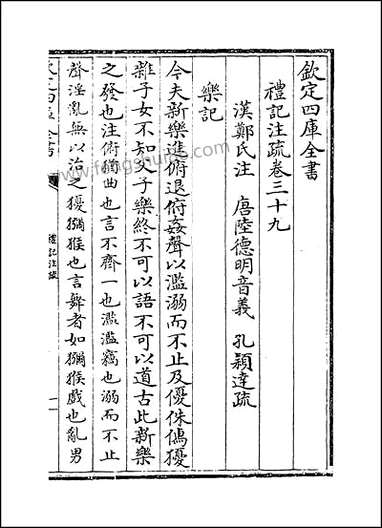 欽定四庫全書
禮記注疏卷三十九
漢鄭氏注 唐陸德明音義 孔穎達疏
樂記
今夫新樂進俯退俯姦聲以濫溺而不止及優侏儒獶
雜子女不知父子樂終不可以語不可以道古此新樂
之發也注俯猶曲也言不齊一也濫濫竊也溺而不止
聲淫亂無以治之獶獼猴也言舞者如獼猴戲也亂男
禮記注疏
一